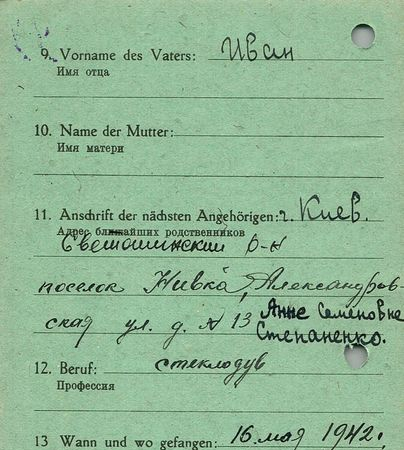 9. Vorname des Vaters: Иван
Имя отца
10. Name der Mutter:
Имя матери
11. Anschrift der nächsten Angehörigen: г. Киев.
Адрес ближайших родственников
Святошинский р-н
поселок Нивка, Александров-
ская ул. д. № 13 Анне Семеновне
Степаненко.
12. Beruf: стеклодув
Профессия
13 Wann und wo gefangen: 16. мая 1942,